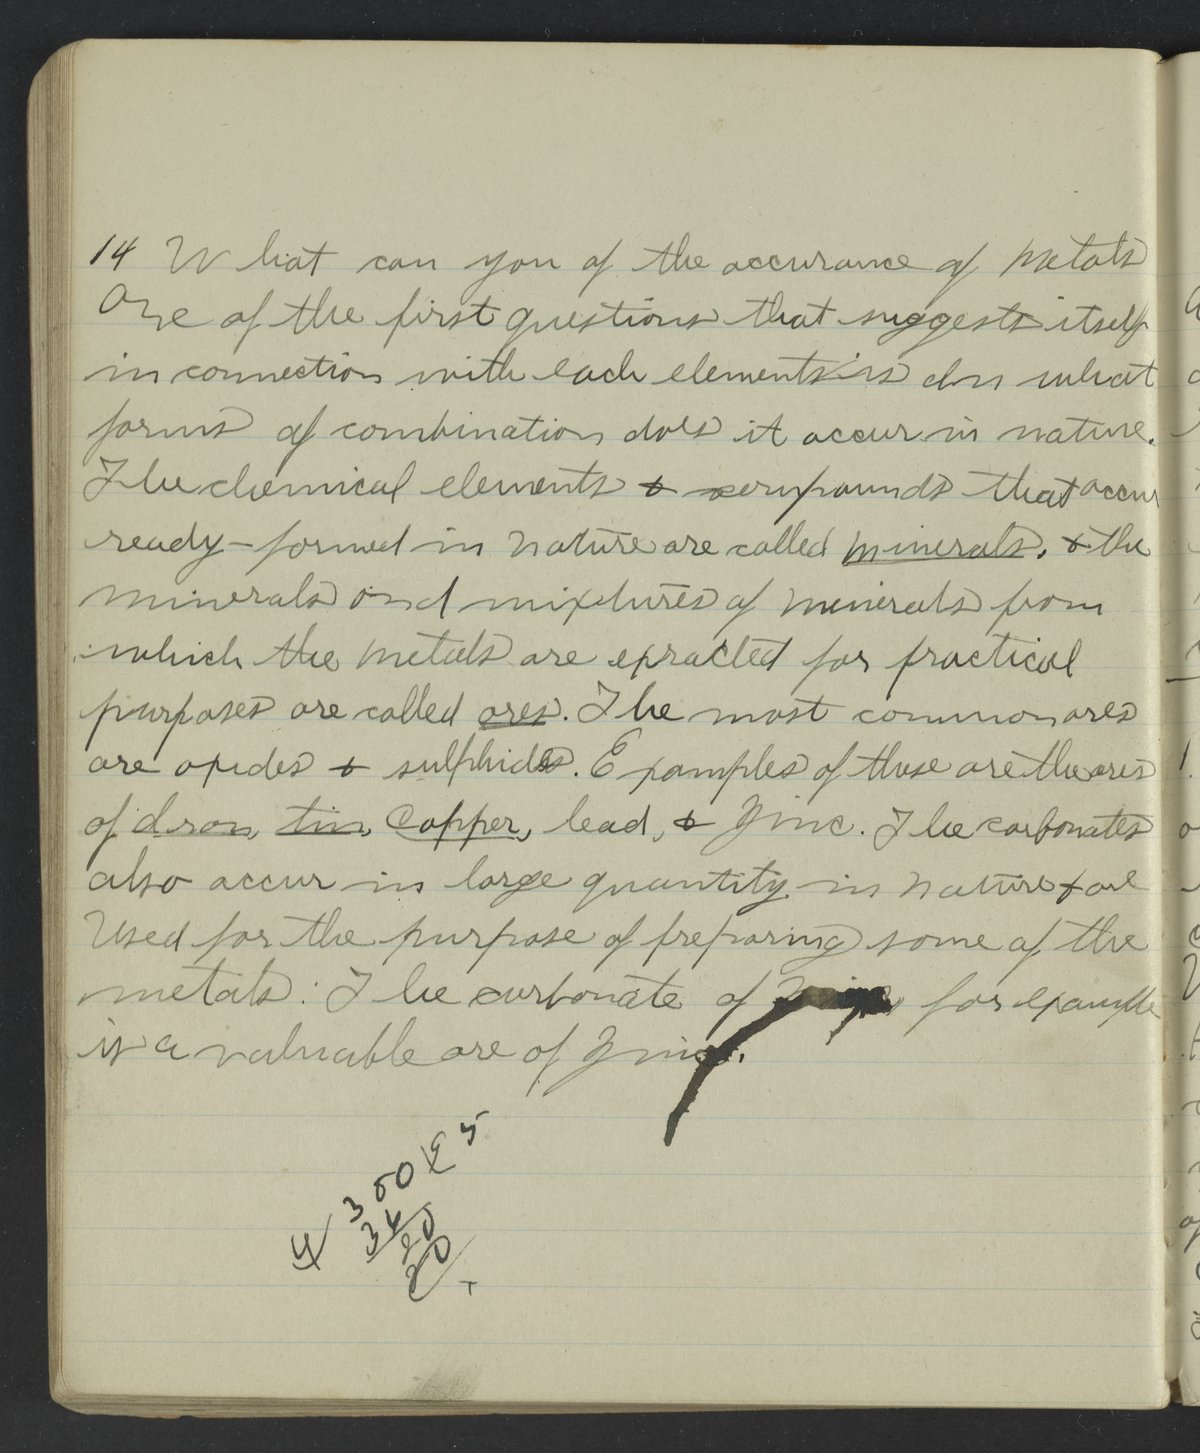 14 What can you of the accurance of Metals
One of the first questions that suggests itself
in connection with each elements is In what
forms of combination does it occur in nature.
The chemical elements & compounds that occur
ready-formed in nature are called minerals. & the
minerals and mixtures of minerals from
which the metals are exracted for practical
purposes are called ores. The most common ores
are oxides & sulphides. Examples of these are the ores
of Iron, tin, Copper, lead, & Zinc. The carbonates
also occur in large quantity in nature & are
Used for the purpose of preparing some of the
metals: The carbonate of Zinc for example
is a valuable ore of Zinc.
5
4 350
36
20
20